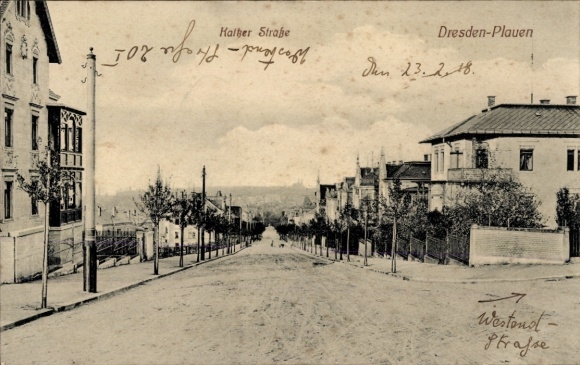 Kaitzer Straße
Dresden-Plauen
Westend-Straße 20I
Den 23.2.18.
Westend-
Straße